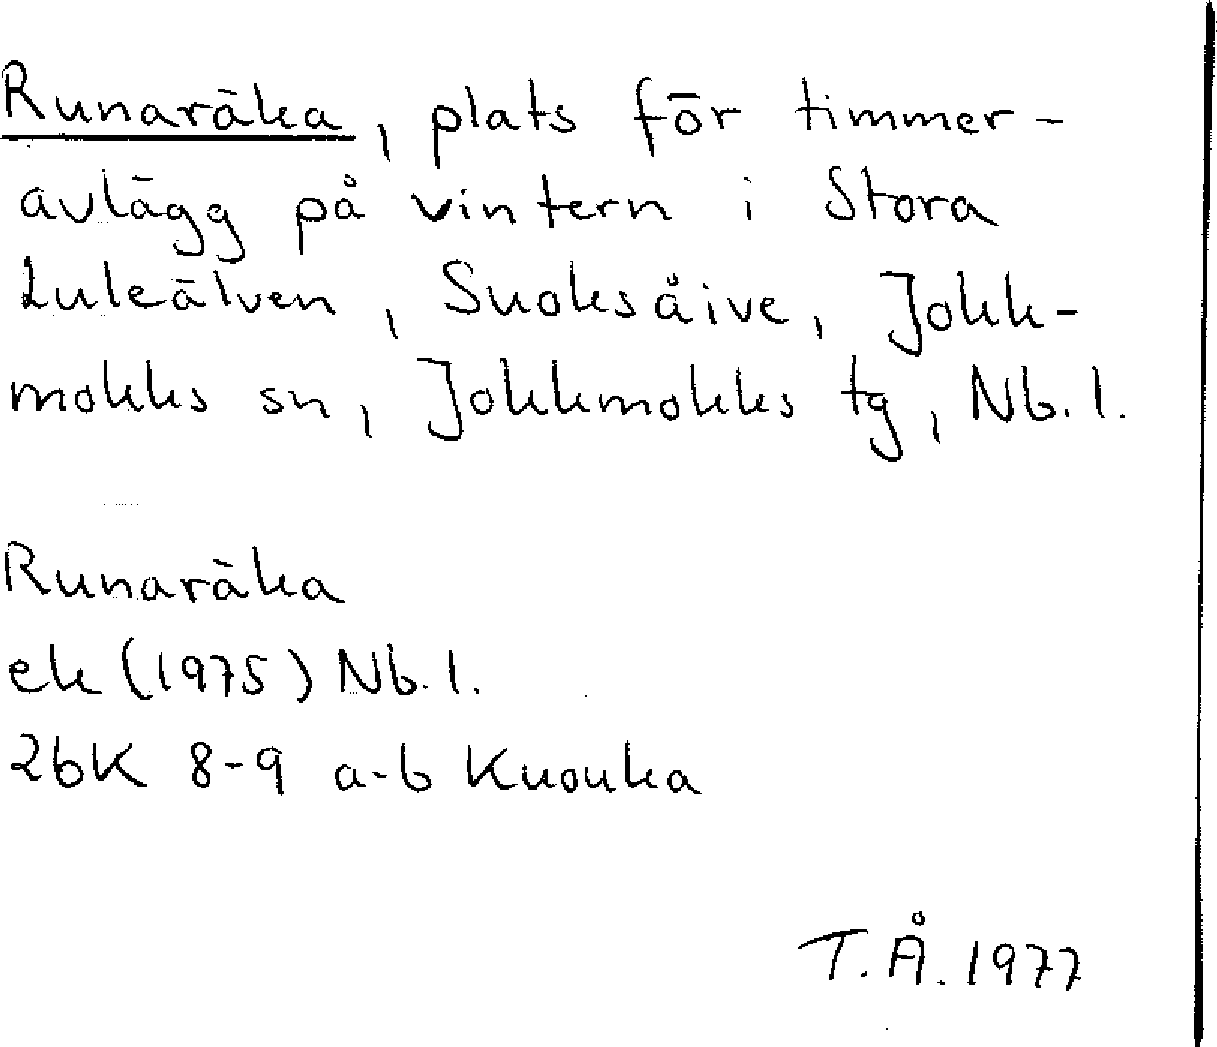 Runaräka, plats för timmer-
avlägg på vintern i Stora
Luleälven, Suoksåive, Jokk-
mokks sn, Jokkmokks tg, Nb.l.
Runaräka
ek (1975) Nb.l.
26K 8-9 a-b Kuouka
T.Å. 1977